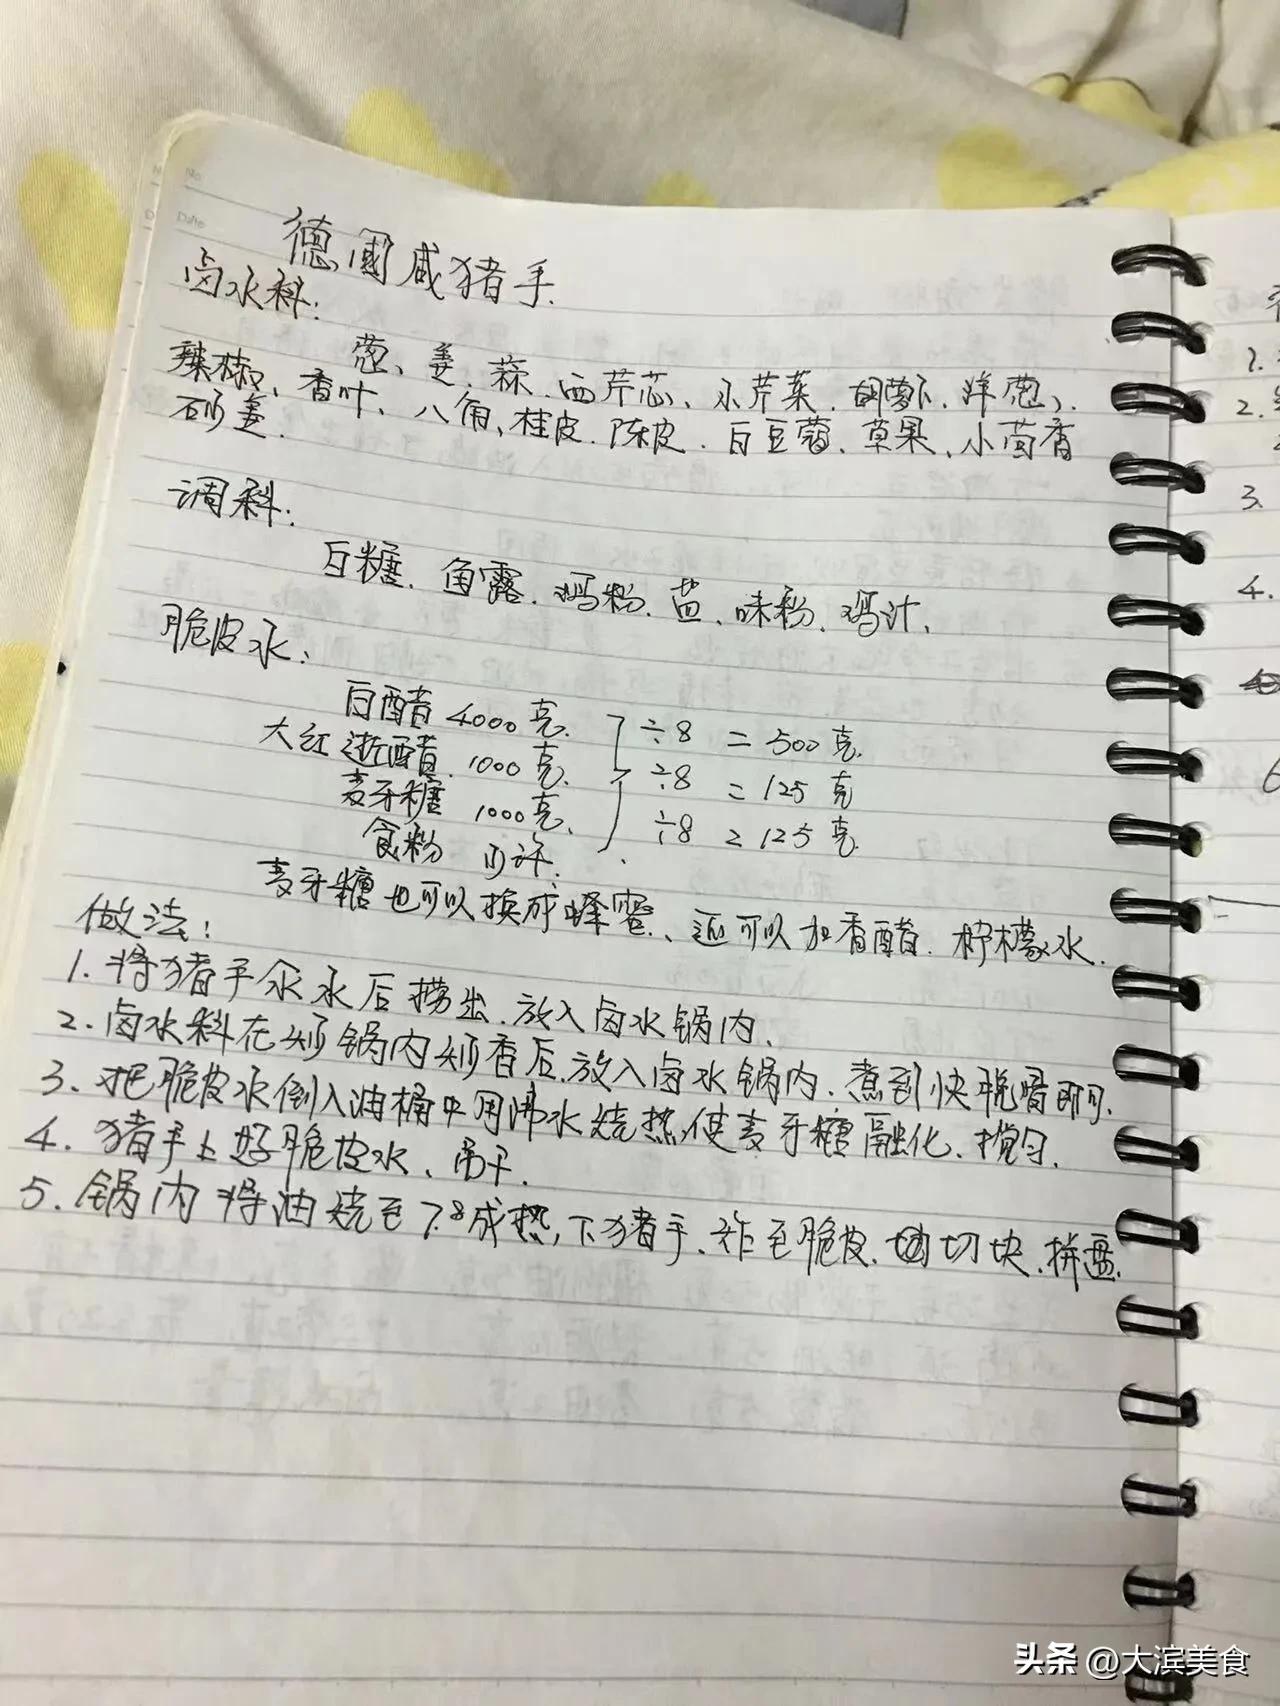 No.
Date
德国咸猪手.
卤水料:
葱、姜、蒜、西芹芯、小芹菜、胡萝卜、洋葱、
辣椒、香叶、八角、桂皮、陈皮、白豆蔻、草果、小茴香
砂姜.
调料:
白糖、鱼露、鸡粉、盐、味粉、鸡汁.
脆皮水:
白醋 4000克. ÷8 = 500克.
大红浙醋 1000克. ÷8 = 125克
麦牙糖 1000克. ÷8 = 125克
食粉 少许.
麦牙糖也可以换成蜂蜜、还可以加香醋、柠檬水.
做法:
1. 将猪手汆水后捞出.放入卤水锅内.
2. 卤水料在炒锅内炒香后.放入卤水锅内.煮到快脱骨即可.
3. 把脆皮水倒入油桶中用沸水烧热,使麦牙糖融化、搅匀.
4. 猪手上好脆皮水、吊干.
5. 锅内将油烧至7.8成热,下猪手、炸至脆皮.切块.拼盘.
1.
2.
3.
4.
头条 @大滨美食